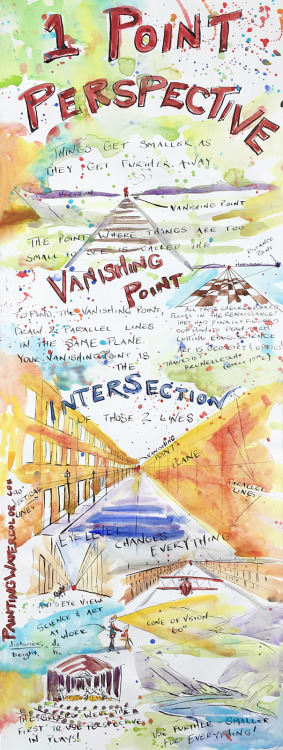 1 POINT
PERSPECTIVE
THINGS GET SMALLER AS
THEY GET FURTHER AWAY
HORIZON
VANISHING POINT
THE POINT WHERE THINGS ARE TOO
SMALL TO SEE IS CALLED THE
VANISHING
POINT
DISTANCE
POINT
HORIZON
TO FIND THE VANISHING POINT,
DRAW 2 PARALLEL LINES
IN THE SAME PLANE.
YOUR VANISHING POINT IS
THE
FLOORS IN THE RENAISSANCE
THEY HAD FINALLY FIGURED
OUT HOW TO
THANKS TO
BRUNELLESCHI
INTERSECTION
OF THOSE 2 LINES
VANISHING
POINT
PLANE
90°
VERTICAL
LINES
PARALLEL
LINES
EYE LEVEL CHANGES EVERYTHING
PAINTINGWATERCOLOR.COM
EYE VIEW
SCIENCE & ART
AT WORK
distances, d2
height, h2
CONE OF VISION
60°
THE GREEKS WERE THE
FIRST TO USE PERSPECTIVE
IN PLAYS!
FURTHER SMALLER
FOR EVERYTHING!